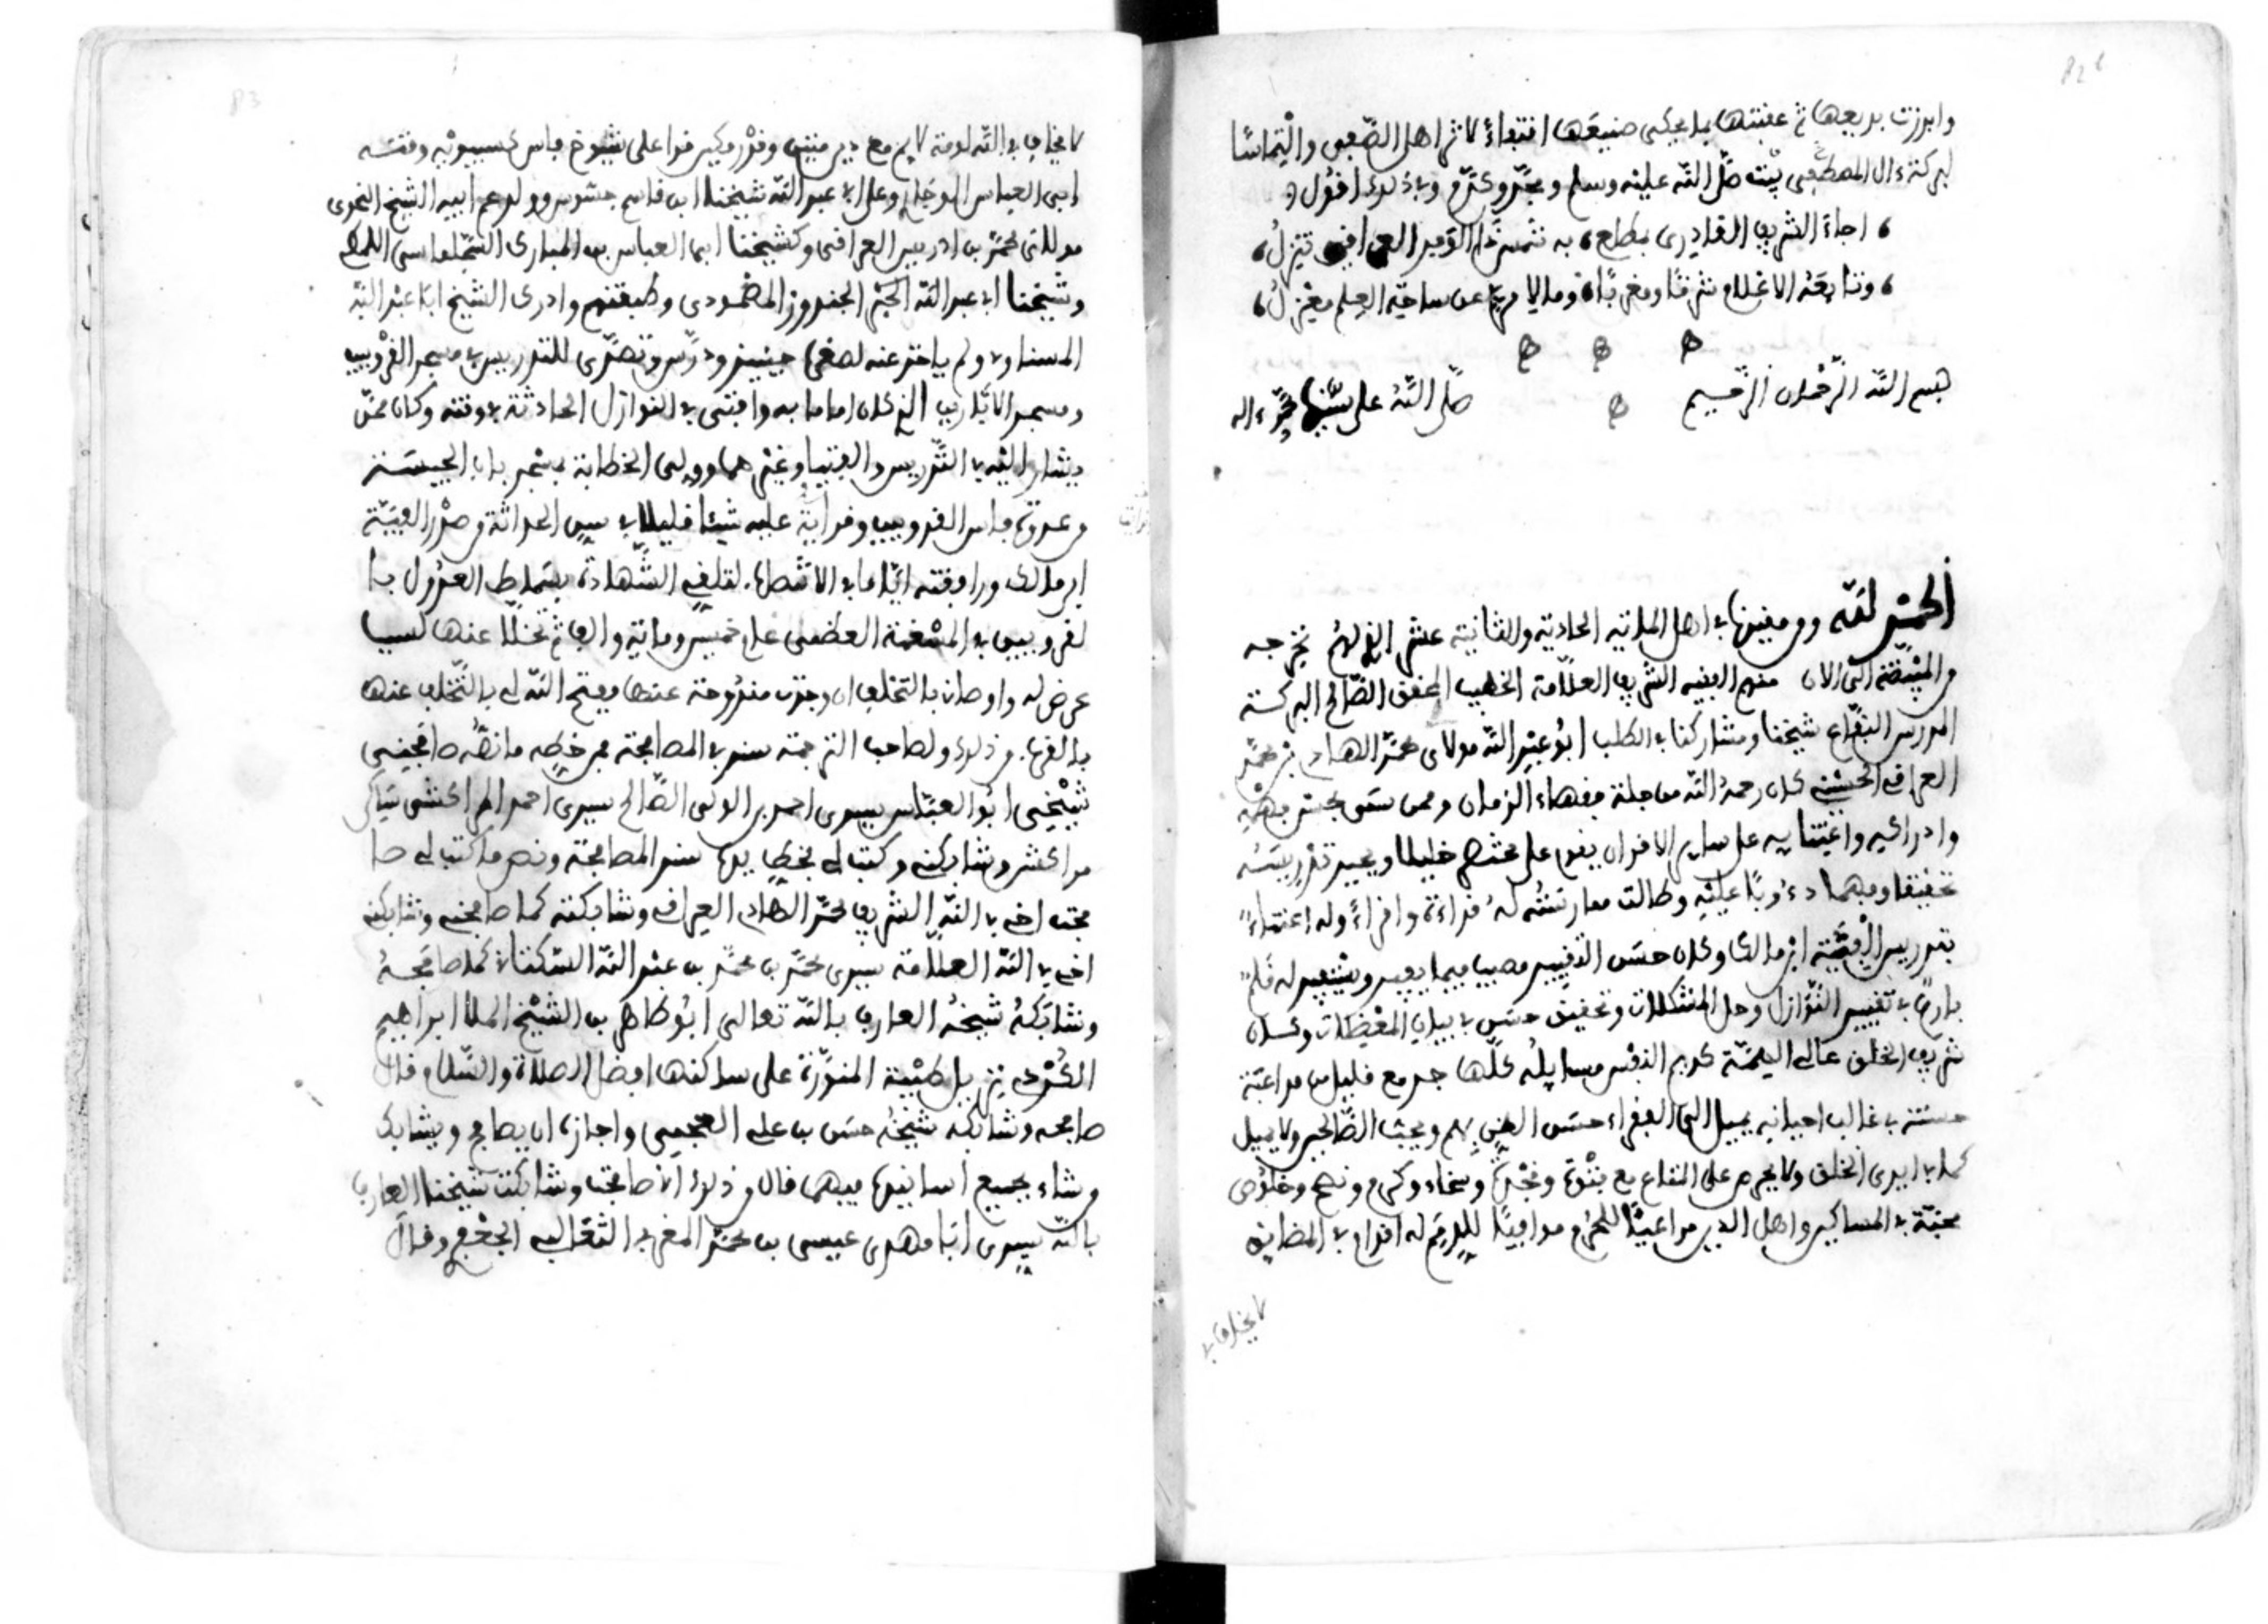 وابرزت بديعها ثم عقبتها بما يحكي صنيعها اقتفاءً لاثر اهل الصفى والتماسًا
لبركة ءال المصطفى بيْت صلّى الله عليْه وسلم ومجّد وكرّم وفي ذلك اقول
اجاءَ الشريف القادرى بمطلع، به شمس هذا العراقي تنزلُ،
وتتابعَه الاعْلام شرقًا ومغربًا، وما لامرئٍ عن ساحة العِلم معْزِلُ،
بسم الله الرّحْمان الرّحيم صلّى اللهُ على سيّدنا محمّد وءاله
الحمْد لله ومن مقيدها في اهل المائة الحادية والثانية عشر الذى لم نخرجه
من المبيّضة الى الان منهم الفقيه الشريف العلّامة الخطيب المحقق الصّالح البركة
المدرس النفّاع شيخنا ومشاركنا في الطلب ابُو عبْد الله مولاى محمّد الهادى بن محمّد
العراقي الحُسيْني كان رحمهُ الله من جلة فقهاء الزمان وممن سمى بحسْن فهْمه
وادراكه واعْتنائه على سائر الاقران يقوم على مختصر خليل ويجيد تدْريسَه
تحقيقا وفهما دءُوبًا عليْه وطالت ممارسَتُه لهُ قراءة واقراءً وله اعتناءٌ
بتدريس الفيّة ابن مالك وكان حسَن التقييد مصيبا فيما يفيد ويسْتفيد له قلم
بارعٌ في تقييد النّوازل وحل المشكلات وتحقيق حسَن في بيان المعْضلات وكان
شريف الخلق عالي الهمّة كريم النفْس مسائله كلّها جد مع قليل من مداعبة
حسَنة في غالب احيانه يميل الى الفقراء حسَن الظن بهم ويحبّ الصّالحين ولا يميل
لما في ايدى الخلق ولا يحرص على المتاع مع فتُوة ونجْدة وسخاء وكرم ونصح وخلُوص
محبّة في المساكين واهل الدين مراعيًا للحُرم موافيًا للذمم له اقدام في المضايق
لا يخاف في
لا يخاف في الله لومة لايم مع دين متين وقدْر مكين قرا على شيوخ فاس كسيبويْه وقته
ابى العباس الوجارى وعلى ابى عبد الله شيخنا ابن قاسم جسّوس وولد عم ابيه الشيخ النحوى
مولاى محمّد بن ادريس العراقي وكشيخنا ابى العباس بن المبارك السّجلماسى اللمطى
وشيخنا ابى عبد الله الكبْير الجندوز المصْمودى وطبقتهم وادرك الشيخ ابا عبْد الله
المسناوى ولم ياخذ عنه لصغره حينئذ ودرّس وتصدّى للتدريس في مسجد القرْويين
ومسجد الابّارين الذى كان اماما به وافتى في النوازل الحادثة في وقته وكان ممّن
يشار اليْه في التّدريس والفتيا وغيْرهما وولى الخطابة بمسْجد باب الجيسَة
من عدوة فاس القرويين وقرات عليه شيئا قليلا في سن الحداثة من صدْر الفيّة
ابن مالك ورافقته ايّاما في الانتصاب لتلقي الشّهادة بسماط العدُول بفاس
القرويين في المسْغبة العظمى عام خمسين وماية والف ثم تخلّى عنها لسبب
عرض له واوصانى بالتخلى ان وجدت مندُوحة عنها ففتح الله لى بالتّخلى عنها
بالقرب من ذلك ولصاحب الترجمة سند في المصافحة فمن خطه ما نصّه صافحني
شيْخي ابُو العبّاس سيدى احمد بن الولي الصّالح سيدى احمد المراكشي
مراكش وشابكني وكتب لي بخط يده سند المصافحة ونص ما كتب لى صا
فحت اخى في الله الشريف محمّد الهادى العراقي وشابكته كما صافحني وشابكني
اخى في الله العلّامة سيدى محمّد بن محمّد بن عبْد الله السّكتانى كما صافحهُ
وشابكهُ شيْخهُ العارف بالله تعالى ابُو طاهر بن الشيْخ الملا ابراهيم
الكُرْدى نزيل طيْبة المنوّرة على ساكنها افضل الصلاة والسّلام قال
صافحه وشابكه شيْخهُ حسَن بن علي العجيمي واجازه ان يصافح ويشابك
من شاء بجميع اسانيدها فيهما قال من ذلك انى صافحت وشابكت شيخنا العارف
بالله سيدى ابَا مهدى عيسى بن محمّد المغربى الثعالبي الجعْفرى وقال